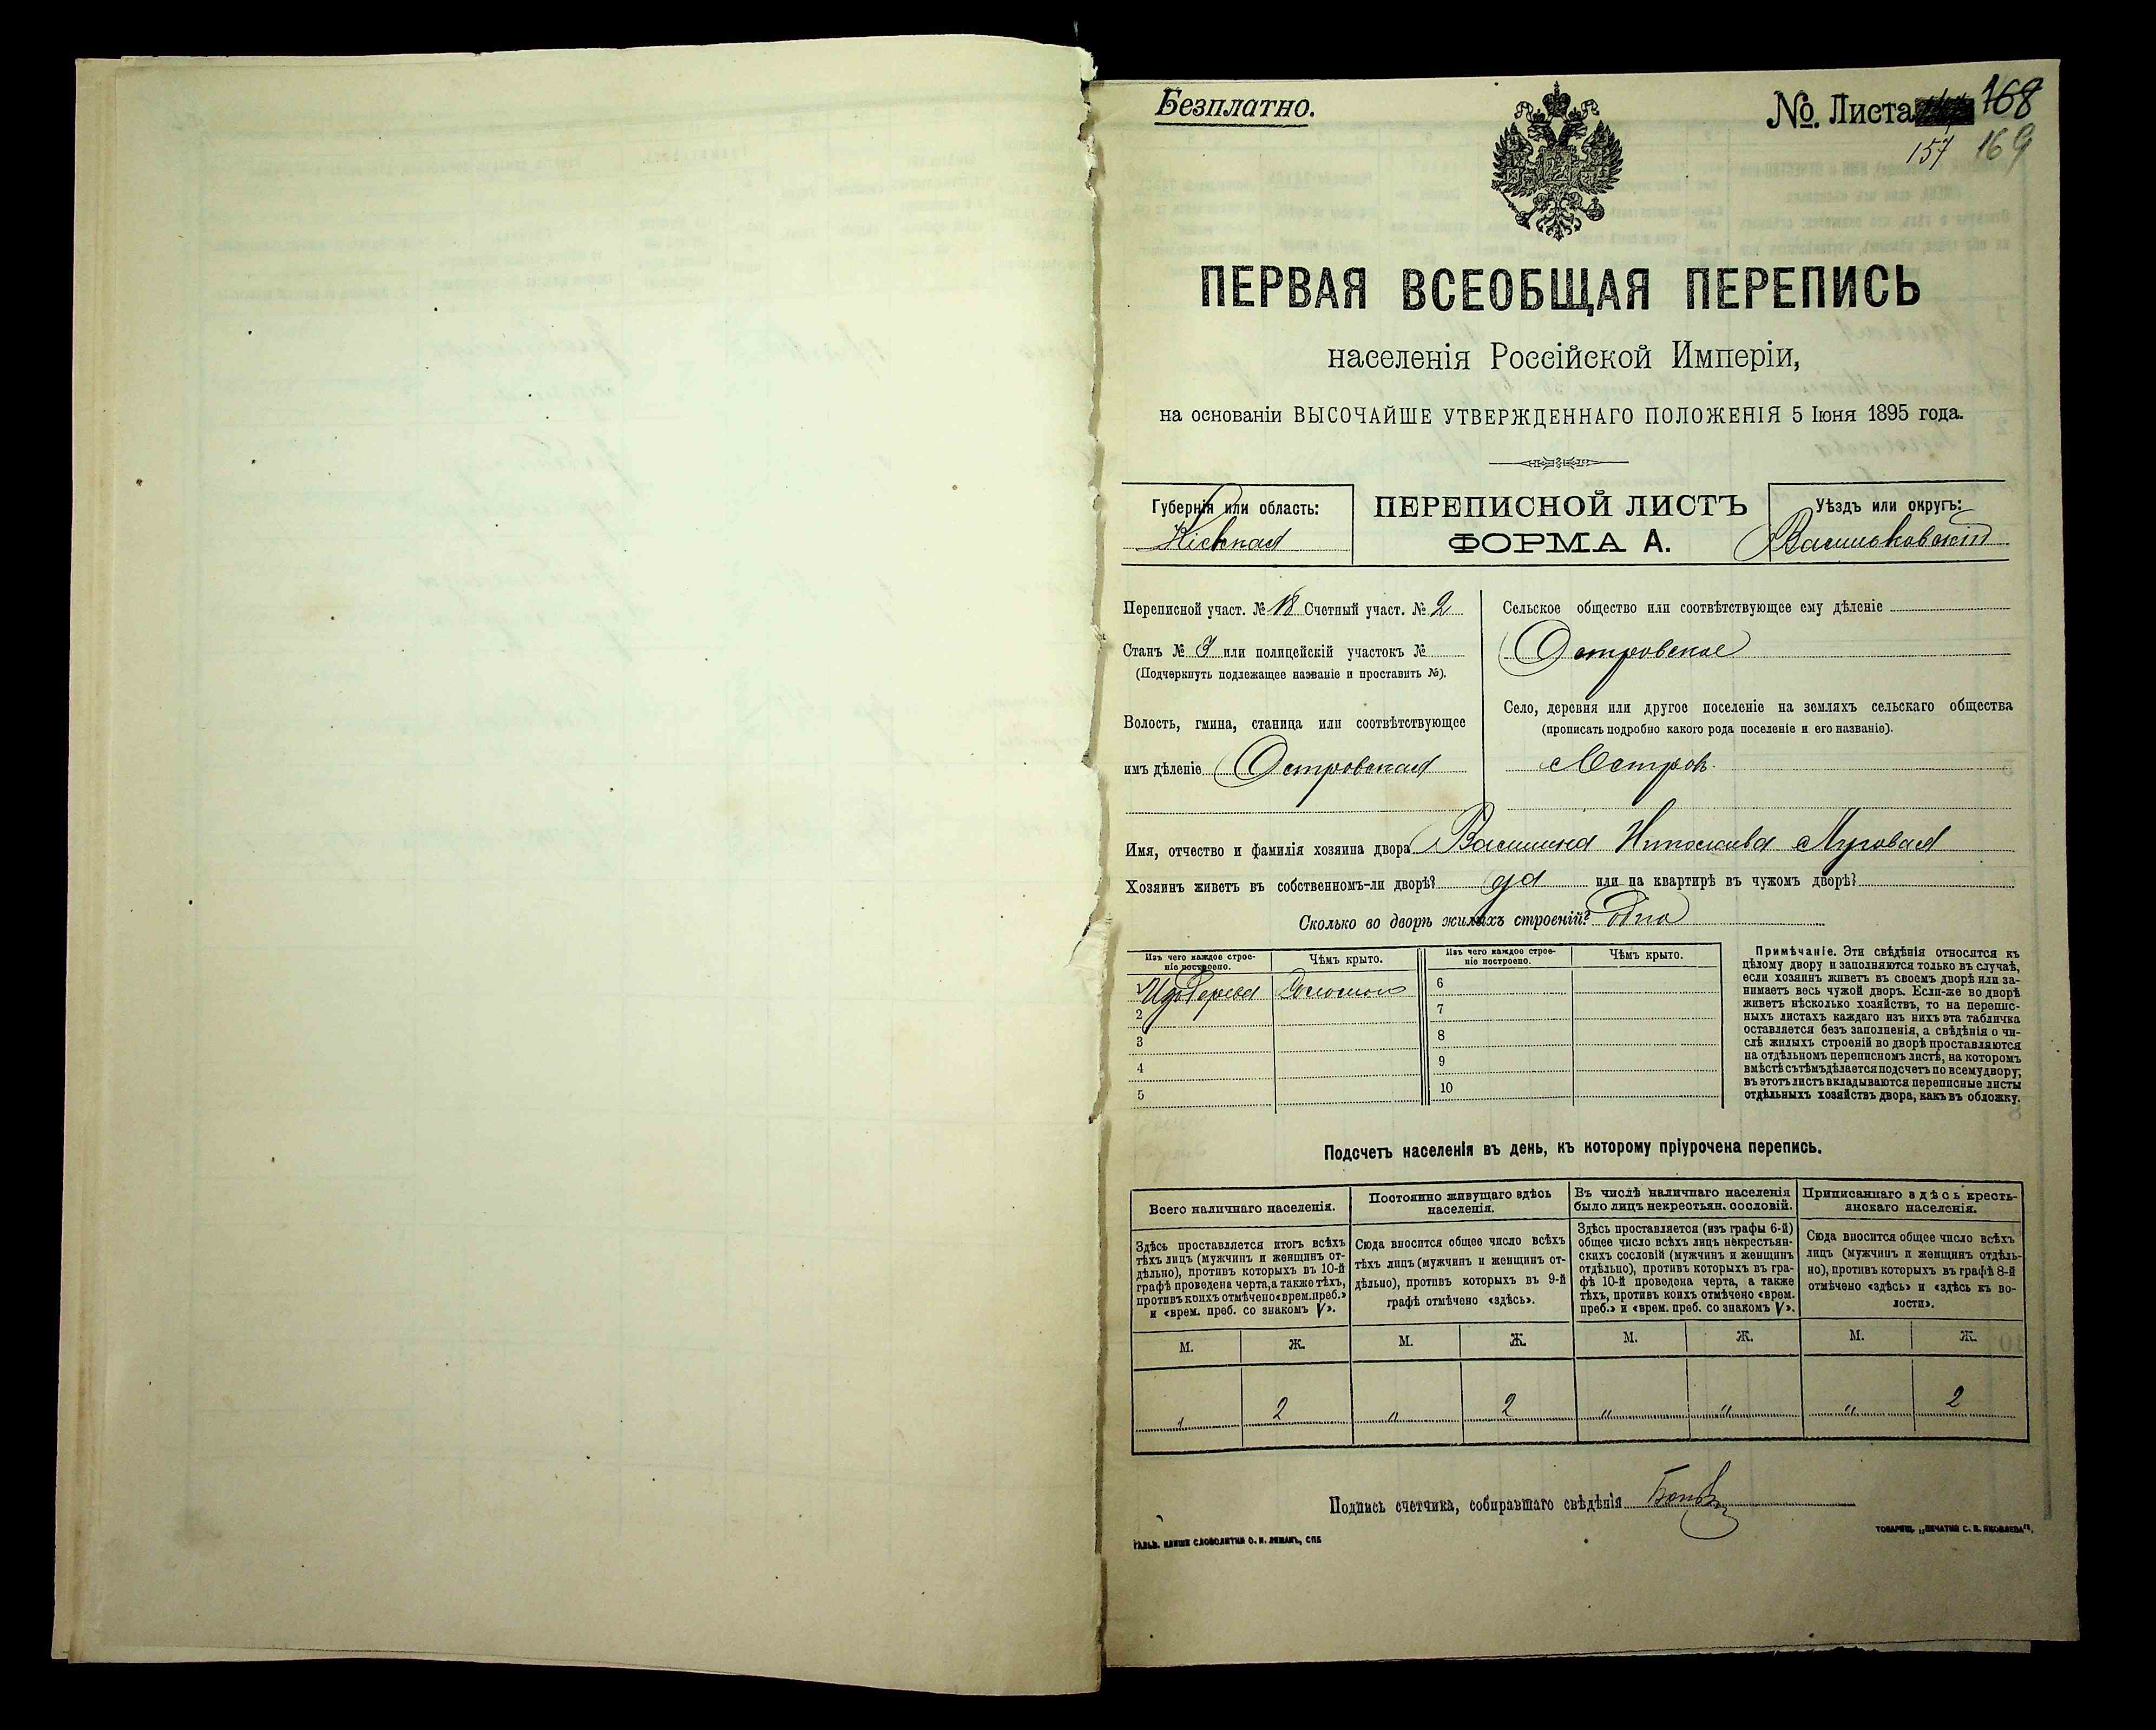 Безплатно.
№. Листа 168
157 169
ПЕРВАЯ ВСЕОБЩАЯ ПЕРЕПИСЬ
населенія Россійской Имперіи,
на основаніи ВЫСОЧАЙШЕ УТВЕРЖДЕННАГО ПОЛОЖЕНІЯ 5 Іюня 1895 года.
Губернія или область:
Кіевская
ПЕРЕПИСНОЙ ЛИСТЪ
ФОРМА А.
Уѣздъ или округъ:
Васильковскій
Переписной участ. № 18 Счетный участ. № 2
Станъ № 3 или полицейскій участокъ №
(Подчеркнуть подлежащее названіе и проставить №).
Волость, гмина, станица или соотвѣтствующее
имъ дѣленіе Островская
Сельское общество или соотвѣтствующее ему дѣленіе
Островское
Село, деревня или другое поселеніе на земляхъ сельскаго общества
(прописать подробно какого рода поселеніе и его названіе).
Имя, отчество и фамилія хозяина двора
Хозяинъ живетъ въ собственномъ-ли дворѣ? да или на квартирѣ въ чужомъ дворѣ?
Сколько во дворѣ жилыхъ строеній? одно
Изъ чего каждое строе-
ніе построено.
Чѣмъ крыто.
Изъ чего каждое строе-
ніе построено.
Чѣмъ крыто.
1 Из дерева Соломою 6
2 7
3 8
4 9
5 10
Примѣчаніе. Эти свѣдѣнія относятся къ
цѣлому двору и заполняются только въ случаѣ,
если хозяинъ живетъ въ своемъ дворѣ или за-
нимаетъ весь чужой дворъ. Если-же во дворѣ
живетъ нѣсколько хозяйствъ, то на перепис-
ныхъ листахъ каждаго изъ нихъ эта табличка
оставляется безъ заполненія, а свѣдѣнія о чи-
слѣ жилыхъ строеній во дворѣ проставляются
на отдѣльномъ переписномъ листѣ, на которомъ
вмѣстѣ съ тѣмъ дѣлается подсчетъ по всему двору;
въ этотъ листъ вкладываются переписные листы
отдѣльныхъ хозяйствъ двора, какъ въ обложку.
Подсчетъ населенія въ день, къ которому пріурочена перепись.
Всего наличнаго населенія.
Здѣсь проставляется итогъ всѣхъ
тѣхъ лицъ (мужчинъ и женщинъ от-
дѣльно), противъ которыхъ въ 10-й
графѣ проведена черта, а также тѣхъ,
противъ коихъ отмѣчено «врем. преб.»
и «врем. преб. со знакомъ V».
Постоянно живущаго здѣсь
населенія.
Сюда вносится общее число всѣхъ
тѣхъ лицъ (мужчинъ и женщинъ от-
дѣльно), противъ которыхъ въ 9-й
графѣ отмѣчено «здѣсь».
Въ числѣ наличнаго населенія
было лицъ некрестьян. сословій.
Здѣсь проставляется (изъ графы 6-й)
общее число всѣхъ лицъ некрестьян-
скихъ сословій (мужчинъ и женщинъ
отдѣльно), противъ которыхъ въ гра-
фѣ 10-й проведена черта, а также
тѣхъ, противъ коихъ отмѣчено «врем.
преб.» и «врем. преб. со знакомъ V».
Приписаннаго здѣсь кресть-
янскаго населенія.
Сюда вносится общее число всѣхъ
лицъ (мужчинъ и женщинъ отдѣль-
но), противъ которыхъ въ графѣ 8-й
отмѣчено «здѣсь» и «здѣсь къ во-
лости».
М. Ж. М. Ж. М. Ж. М. Ж.
„ 2 „ 2 „ „ „ 2
Подпись счетчика, собиравшаго свѣдѣнія
ГАЛЬВ. КЛИШЕ СЛОВОЛИТНИ О. И. ЛЕМАНЪ, СПБ
ТОВАРИЩ. „ПЕЧАТНЯ С. П. ЯКОВЛЕВА“,